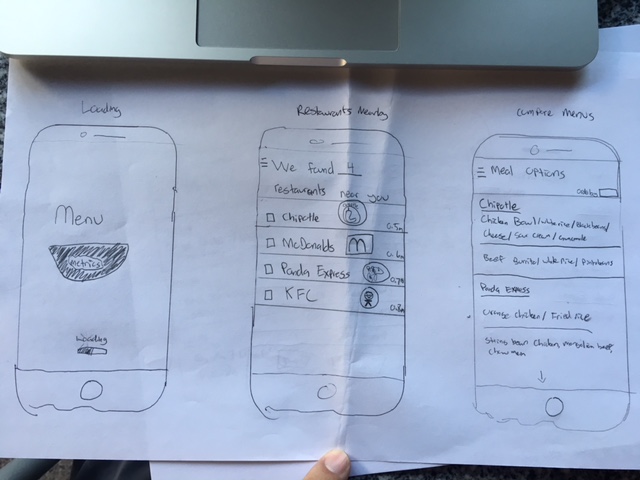 Loading
Menu
metrics
Loading
Restaurants Nearby
We found 4
restaurants near you
Chipotle
McDonalds
M
Panda Express
KFC
Compare Menus
Meal options
Chipotle
Chicken Bowl/white rice/black beans/
cheese/sour cream/guacamole
Beef Burrito/white rice/pinto beans
Panda Express
orange chicken/Fried rice
String bean chicken
chow mein